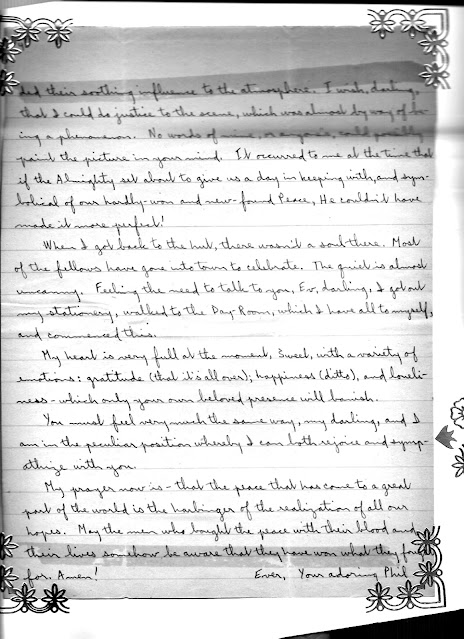 ded their soothing influence to the atmosphere. I wish, darling,
that I could do justice to the scene, which was almost by way of be-
ing a phenomenon. No words of mine, or anyone's, could possibly
paint the picture in your mind. It occurred to me at the time that
if the Almighty set about to give us a day in keeping with, and sym-
bolical of our hardly-won and new-found Peace, He couldn't have
made it more perfect!
When I got back to the hut, there wasn't a soul there. Most
of the fellows have gone into town to celebrate. The quiet is almost
uncanny. Feeling the need to talk to you, Ev, darling, I got out
my stationery, walked to the Day-Room, which I have all to myself,
and commenced this.
My heart is very full at the moment, Sweet, with a variety of
emotions: gratitude (that it's all over); happiness (ditto), and loneli-
ness - which only your own beloved presence will banish.
You must feel very much the same way, my darling, and I
am in the peculiar position whereby I can both rejoice and symp-
athize with you.
My prayer now is - that the peace that has come to a great
part of the world is the harbinger of the realization of all our
hopes. May the men who bought the peace with their blood and
their lives somehow be aware that they have won what they
for. Amen! Ever, Your adoring Phil